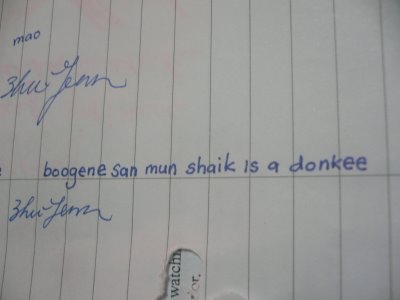 mao
Zhui Jenn
boogene san mun shaik is a donkee
Zhui Jenn
watchi
ior.